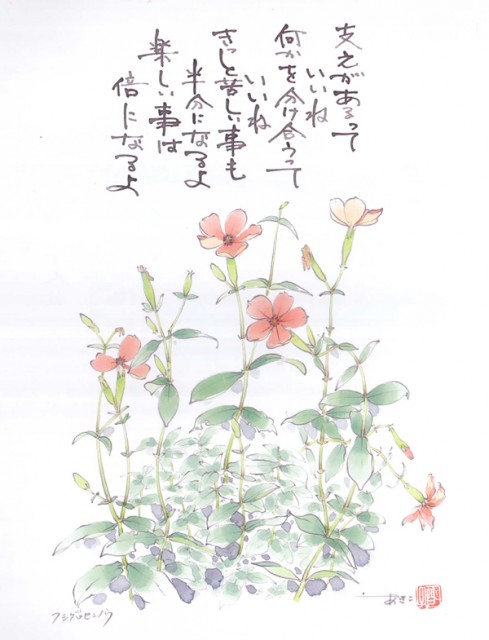 支えがあるって
いいね
何かを分け合うって
いいね
きっと苦しい事も
半分になるよ
楽しい事は
倍になるよ
フシグロセンノウ
あきこ